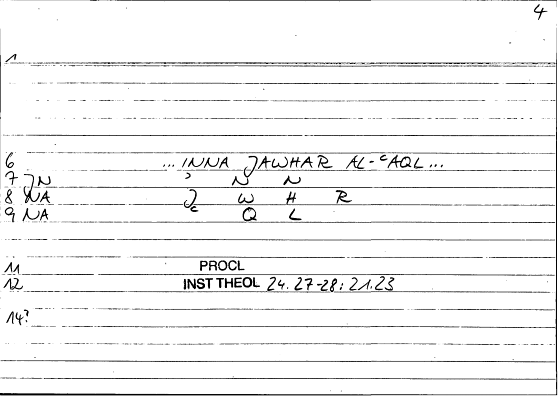 4
1
6 ... INNA JAWHAR AL-ᶜAQL ...
7 JN ʾ N N
8 NA J W H R
9 NA ᶜ Q L
11 PROCL
12 INST THEOL 24.27-28: 21.23
14?